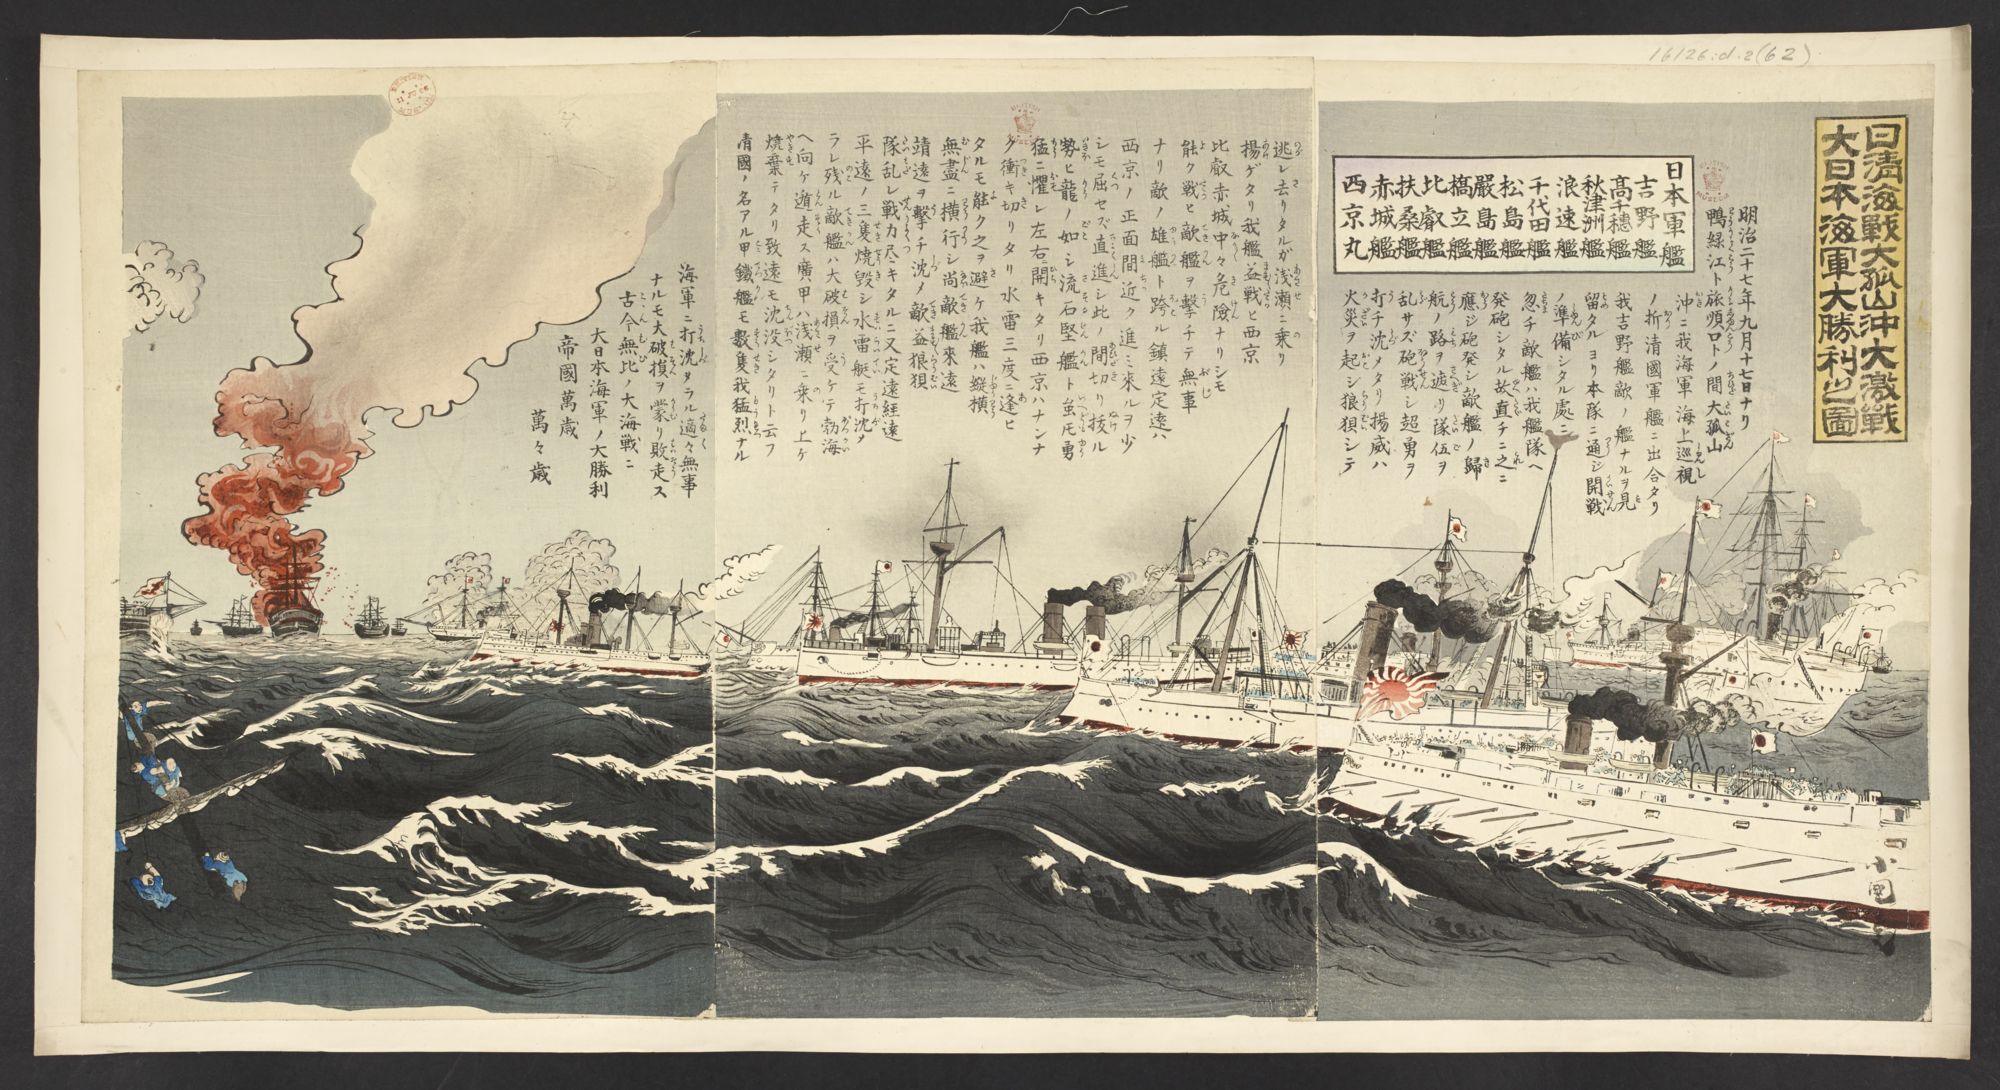 16126.d.2(62)
日清海戰大孤山沖大激戰
大日本海軍大勝利之圖
日本軍艦
吉野艦
高千穗艦
秋津洲艦
浪速艦
千代田艦
松島艦
嚴島艦
橋立艦
比叡艦
扶桑艦
赤城艦
西京丸
明治二十七年九月十七日ナリ
鴨緑江ト旅順口トノ間大孤山
沖ニ我海軍海上巡視
ノ折清國軍艦ニ出合タリ
我吉野艦敵ノ艦ナルヲ見
留タルヨリ本隊ニ通ジ開戦
ノ準備シタル處ニ
忽チ敵艦ハ我艦隊ヘ
発砲シタル故直チニ之ニ
應ジ砲発シ敵艦ノ歸
航ノ路ヲ遮リ隊伍ヲ
乱サズ砲戦シ超勇ヲ
打チ沈メタリ揚威ハ
火災ヲ起シ狼狽シテ
逃レ去リタルガ浅瀬ニ乗リ
揚ゲタリ我艦益戦ヒ西京
比叡赤城中々危險ナリシモ
能ク戦ヒ敵艦ヲ撃チテ無事
ナリ敵ノ雄艦ト跨ル鎮遠定遠ハ
西京ノ正面間近ク進ミ来ルヲ少
シモ屈セズ直進シ此ノ間切リ抜ル
勢ヒ龍ノ如シ流石堅艦ト虽ドモ勇
猛ニ懼レ左右開キタリ西京ハナンナ
ク衝キ切リタリ水雷三度ニ逢ヒ
タルモ能ク之ヲ避ケ我艦ハ縦横
無盡ニ横行シ尚敵艦來遠
靖遠ヲ撃チ沈メ敵益狼狽
隊乱レ戦力尽キタルニ又定遠経遠
平遠ノ三隻焼毀シ水雷艇モ打沈メ
ラレ残ル敵艦ハ大破損ヲ受ケテ勃海
ヘ向ケ遁走ス廣甲ハ浅瀬ニ乗リ上ケ
焼棄テタリ致遠モ沈没シタリト云フ
清國ノ名アル甲鐵艦モ數隻我猛烈ナル
海軍ニ打沈メラル適々無事
ナルモ大破損ヲ蒙リ敗走ス
古今無比ノ大海戦ニ
大日本海軍ノ大勝利
帝國萬歳
萬々歳
小國
BRITISH MUSEUM